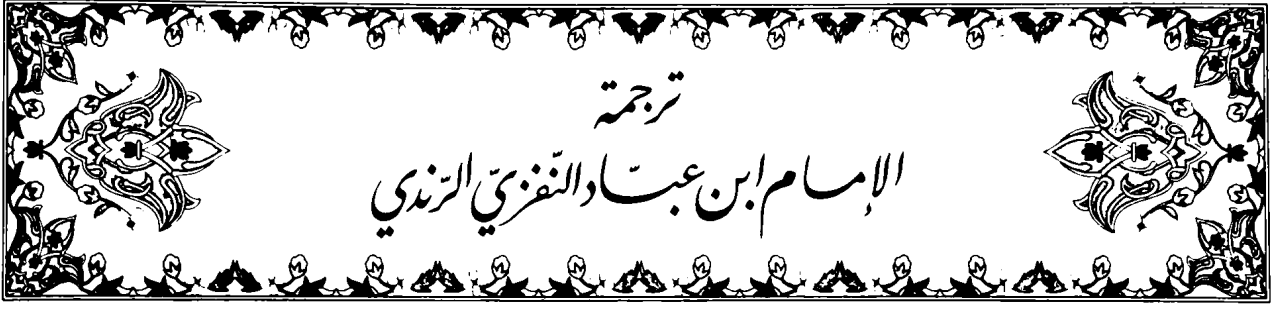 ترجمة
الإمام ابن عبّاد النّفزيّ الرّندي